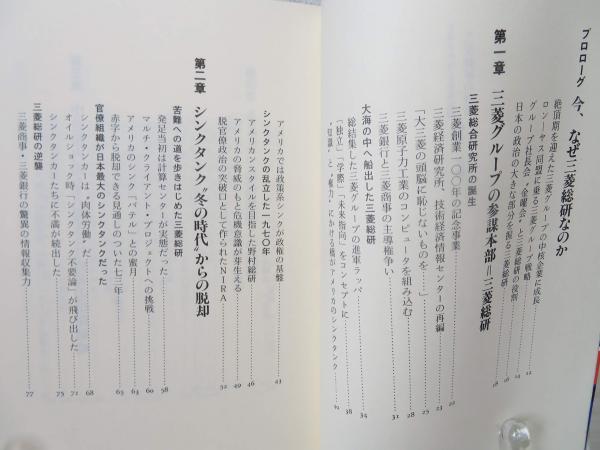 プロローグ 今、なぜ三菱総研なのか
絶頂期を迎えた三菱グループの中核企業に成長 12
ロン=ヤス同盟に乗る三菱グループ戦略 14
グループ社長会“金曜会”と三菱総研の役割 16
日本の政治の大きな部分を握る三菱総研 18
第一章 三菱グループの参謀本部=三菱総研
三菱総合研究所の誕生
三菱創業一〇〇年の記念事業 22
三菱経済研究所、技術経済情報センターの再編 23
「大三菱の頭脳に恥じないものを…」 25
三菱原子力工業のコンピュータを組み込む 28
三菱銀行と三菱商事の主導権争い 31
大海の中へ船出した三菱総研
総結集した三菱グループの進軍ラッパ 34
「独立」「学際」「未来指向」をコンセプトに 38
“知識”と“権力”にかける橋がアメリカのシンクタンク
アメリカでは政策系シンクが政権の基盤 43
シンクタンクの乱立した一九七〇年
アメリカンスタイルを目指した野村総研 46
アメリカの脅威のもと危機意識が芽生える 49
脱官僚政治の突破口として作られたNIRA 52
第二章 シンクタンク“冬の時代”からの脱却
苦難への道を歩きはじめた三菱総研
発足当初は計算センターが実態だった 58
マルチ・クライアント・プロジェクトへの挑戦 60
アメリカのシンク「バテル」との蜜月 63
赤字から脱却できる見通しのついた七三年 65
官僚組織が日本最大のシンクタンクだった
シンクタンカーは“肉体労働”だ 68
オイルショック時「シンクタンク不要論」が飛び出した 71
シンクタンカーたちに不満が続出した 75
三菱総研の逆襲
三菱商事・三菱銀行の驚異の情報収集力 77